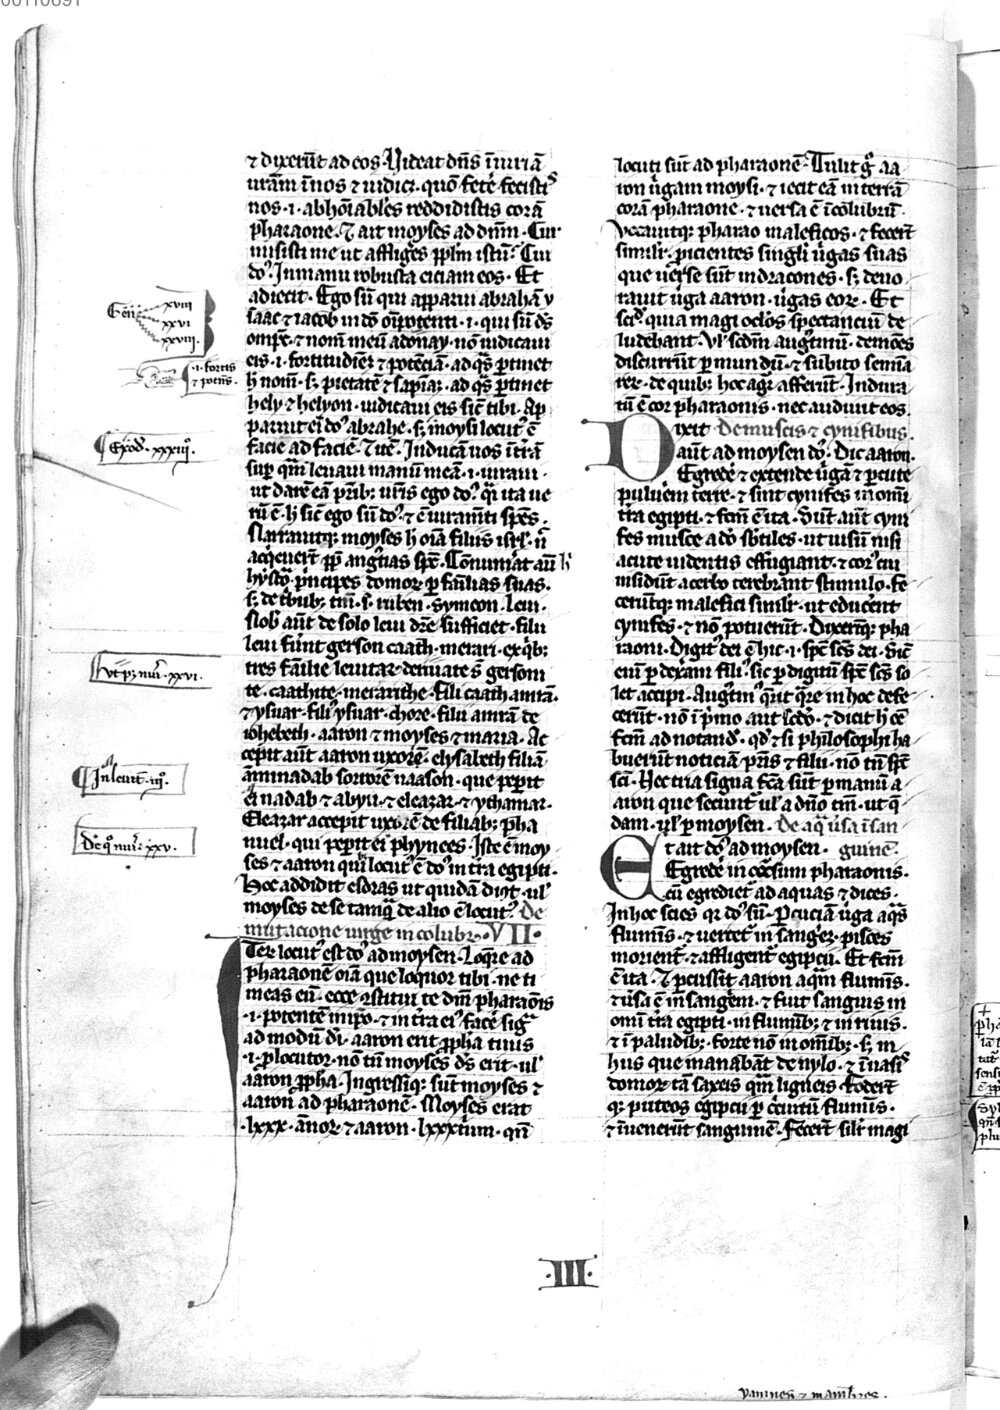 ⁊ dixerūt ad eos · Uideat dn̄s īiuriā
urām ī nos ⁊ iudicꝫ · quō fetē fecistꝰ
nos · i · abhoīables reddidistis corā
pharaone · Et ait moyses ad dn̄m · Cur
misisti me ut affliges ppl̄m istū · Cui
do᷒ · In manu robusta eiciam eos · Et
adiecit · Ego sū qui apparui abrahā y
saac ⁊ iacob in dō oīpotenti · i · qui sū ds̄
ompc̄ ⁊ nom̄ meū adonay · nō iudicaui
eis · i · fortitudiēꝫ ⁊ potēciā · ad qs̄ ꝑtinet
h nom̄ · sꝫ pietatē ⁊ sapiā · ad qs̄ ꝑtinet
hely ⁊ helyon · iudicaui eis sic̄ tibi · Ap
paruit eī do᷒ abrahe · sꝫ moysi locutꝰ ē
facie ad faciē · Inducā uos ī tr̄ā
suꝑ qm̄ leuaui manū meā · i · iuraui ·
ut darē eā pr̄ibꝫ ur̄is ego do᷒ · qr̄ ita ue
rū ē · h sic̄ ego sū do᷒ · ⁊ ē iuramti spēs ·
Narrauitqꝫ moyses h oīa filiis isrl̄ · ⁊ n̄
acqͥeuerūt ꝓp̄ angͥtias spc̄ · Cōnumāt aū h̄
hysto᷒ pͥncipes domoꝝ ꝑ fāīlias suas ·
s · de tͥbubꝫ tm̄ · s · ruben · symeon · leui ·
Nob᷒ aūt de solo leui dr̄e sufficiet · filii
leui fuer̄t gerson caath · merari · ex qͥbꝫ
tres fāmilie leuitaꝝ deriuate s̄ · gersoni
te · caathite · merarithe · filii caath amrā ·
⁊ ysuar · filiꝰ ysuar · chore · filii amrā de
iohebeth · aaron ⁊ moyses ⁊ maria · Ac
cepit aūt aaron uxorē · elysabeth filiā
āminadab sororē naason · que peꝑit
ei nadab ⁊ abyu ⁊ eleazar · ⁊ ythamar ·
Eleazar accepit uxorē de filiabꝫ pha
nuel · qui peꝑit ei phynees · Iste ē moy
ses ⁊ aaron qͥbꝰ locutꝰ ē do᷒ in tr̄a egipti ·
Hoc addidit esdras ut quidā dn̄t · ul᷒
moyses de se tamqͣ de alio ē locutꝰ · De
mutacione uirge in colubrꝫ · VII ·
Iter locutꝰ est do᷒ ad moysen · Loqͥre ad
pharaonē oīa que loquor tibi · ne ti
meas eū · ecce ꝯstitui te dm̄ pharaōis
· i · potentē impo · ⁊ in tr̄a eiꝰ facē sigͣ
ad modū dī · aaron erit ꝓpha tuus
· i · ꝓlocutor · nō tn̄ moyses ds̄ erit · ul᷒
aaron ꝓpha · Ingressiqꝫ sūt moyses ⁊
aaron ad pharaonē · Moyses erat
· lxxx · annoꝝ ⁊ aaron · lxxxtͥum · qn̄
locuti sūt ad pharaonē · Tulit gͦ aa
ron uͥgam moysi · ⁊ iecit eā in terrā
corā pharaone · ⁊ uersa ē ī colubrū ·
Uocauitqꝫ pharao maleficos · ⁊ fecer̄t
simil̄r · ꝓicientes singli uͥgas suas
que uer̄se sūt in dracones · sꝫ deuo
rauit uͥga aaron · uͥgas eoꝝ · Et
sc̄dꝫ quia magi oclos spectanciū de
ludebant · Ul᷒ scdm̄ augͥtinū · demōes
discurrūt ꝑ mundū · ⁊ subito semīa
reꝝ · de quibꝫ hoc agr̄ afferūt · Indura
tū ē cor pharaonis · nec audiuit eos ·
Dixit De muscis ⁊ cynifibus ·
aūt ad moysen do᷒ · Dic aaron ·
Egredē ⁊ extende uͥgā ⁊ ꝑcute
puluēm terre · ⁊ sint cynifes in omī
tr̄a egipti · ⁊ fcm̄ ē ita · Sūt aūt cyni
fes musce adō sb̄tiles · ut uisū nisi
acute uidentis effugiant · ⁊ corꝰ cui
insidūt acerbo terebrant stimulo · Fe
cerūtqꝫ malefici simil̄r · ut educēnt
cynifes · ⁊ nō potuerūt · Dixerūqꝫ pha
raoni · Digitꝰ dei ē hic · i · spc̄ sc̄s dei · Sic̄
enī ꝑ dexām filiꝰ sic ꝑ digitū spc̄ sc̄s so
let accipi · Augͥtinꝰ qͥrit qͣre in hoc defe
cerūt · nō ī pͥmo aut sc̄do · ⁊ dicit h ēē
fcm̄ ad notandꝫ · qd̄ ⁊ si philosophi ha
buerūt noticiā pr̄is ⁊ filii · nō tn̄ spc̄
sc̄i · Hec tria signa fc̄a sūt ꝑ manū a
aron que secuntꝰ ul᷒ a dn̄o tm̄ · ut qͣ
dam · ul᷒ ꝑ moysen · De aqͣ uͥsa ī san
Et ait do᷒ ad moysen · guinē ·
Egredē in occ̄sum pharaonis ·
cū egredietꝰ ad aquas ⁊ dices ·
In hoc scies qr̄ do᷒ sū · Ꝑcuciā uͥga aqͣs
fluminis · ⁊ uertetꝰ in sangͥeꝫ · pisces
morient̄ · ⁊ affligent̄ egipcii · Et fcm̄
ē ita · Et ꝑcussit aaron aqͣm fluminis ·
⁊ uͥsa ē in sangͥem · ⁊ fuit sanguis in
omī tr̄a egipti · in fluminibꝫ ⁊ in riuis ·
⁊ ī paludibꝫ · forte nō in omībꝫ · sꝫ in
hiis que manabāt de nylo · ⁊ ī uasis
domoꝝ tā saxeis qͣm ligneis · Foder̄t
qꝫ puteos egipcii ꝑ circuitū fluminis ·
⁊ īuenerūt sanguinē · Fecer̄t silr̄ magi
Gen̄ xviii
xxvi
xxviii ·
· i · fortis
⁊ potens ·
Exod · xxxiiiͦ ·
ut pꝫ nūi · xxvi ·
In leuit · iiiͦ ·
De qͦ nūi · xxv ·
· III ·
yamnes ⁊ mambres ·